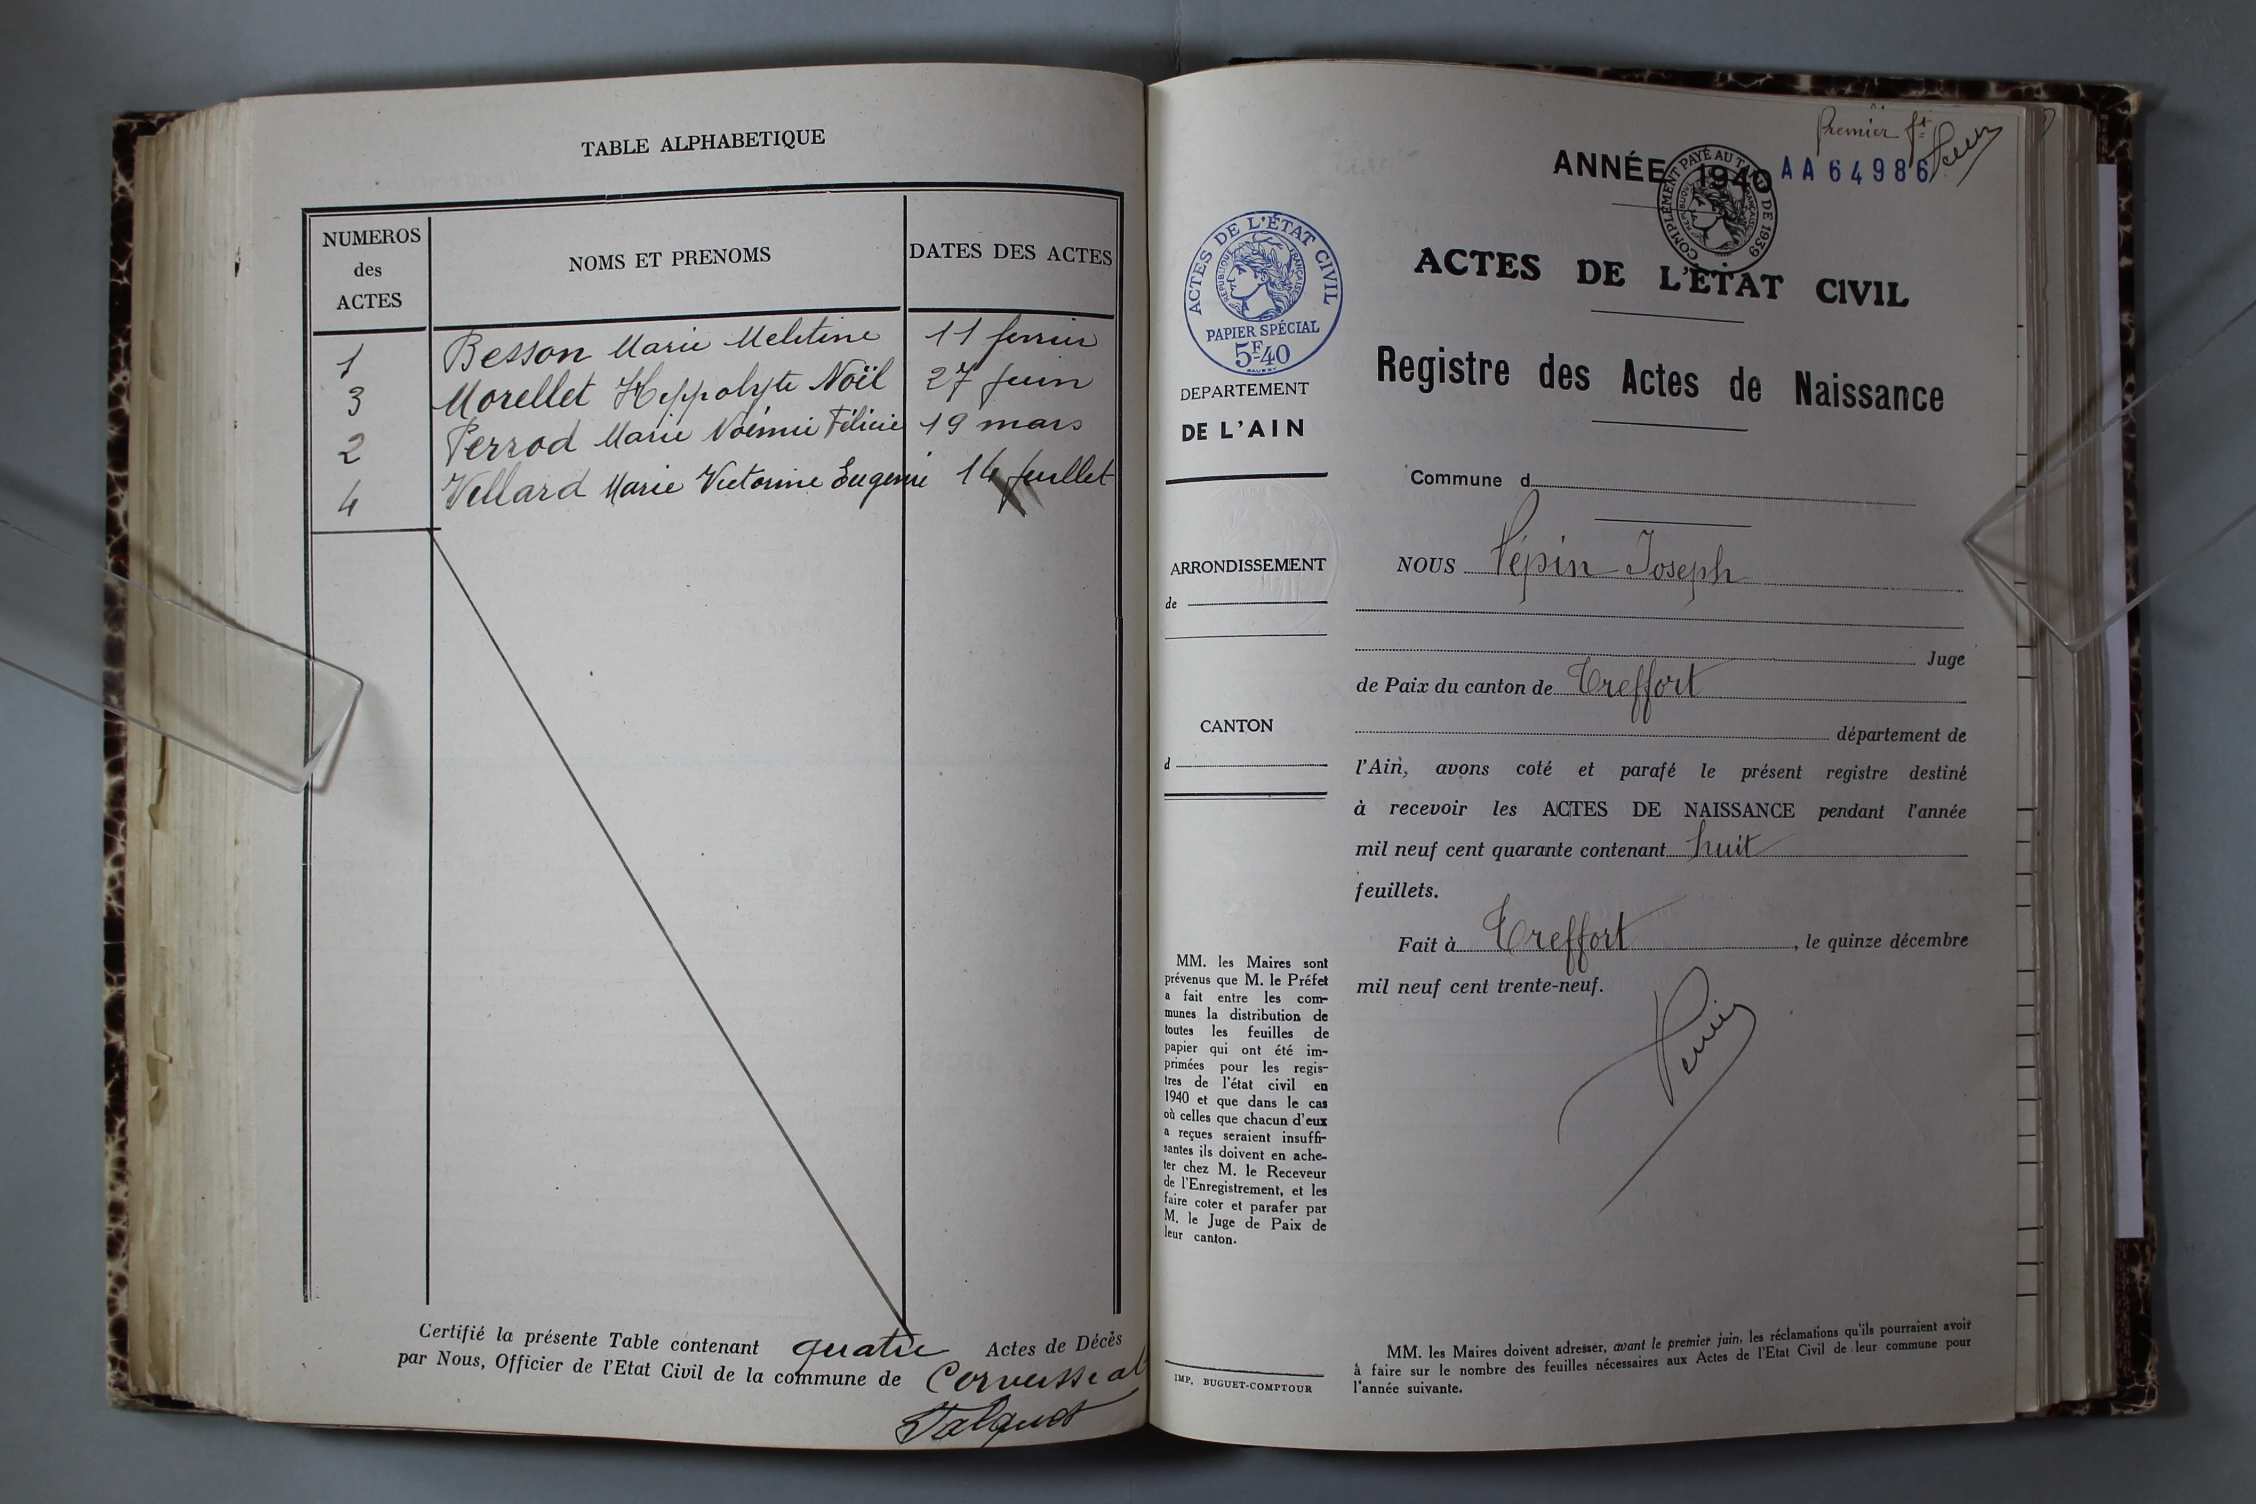 TABLE ALPHABETIQUE
NUMEROS
des
ACTES
NOMS ET PRENOMS
DATES DES ACTES
1 Besson Marie Melitine 11 fevrier
3 Morellet Hippolyte Noël 27 juin
2 Perrod Marie Noémie Félicie 19 mars
4 Vellard Marie Victorine Eugenie 14 juillet
Certifié la présente Table contenant quatre Actes de Décès
par Nous, Officier de l'Etat Civil de la commune de Corveissiat
Premier ft
ANNÉE 1940 AA64986
COMPLÉMENT PAYÉ AU TARIF DE 1939
RÉPUBLIQUE FRANÇAISE
ACTES DE L'ÉTAT CIVIL
RÉPUBLIQUE FRANÇAISE
PAPIER SPÉCIAL
5F40
DEPARTEMENT
DE L'AIN
ARRONDISSEMENT
de
CANTON
d
MM. les Maires sont
prévenus que M. le Préfet
a fait entre les com-
munes la distribution de
toutes les feuilles de
papier qui ont été im-
primées pour les regis-
tres de l'état civil en
1940 et que dans le cas
où celles que chacun d'eux
a reçues seraient insuffi-
santes ils doivent en ache-
ter chez M. le Receveur
de l'Enregistrement, et les
faire coter et parafer par
M. le Juge de Paix de
leur canton.
IMP. BUGUET-COMPTOUR
ACTES DE L'ÉTAT CIVIL
Registre des Actes de Naissance
Commune d
NOUS Pépin Joseph
Juge
de Paix du canton de Treffort
département de
l'Ain, avons coté et parafé le présent registre destiné
à recevoir les ACTES DE NAISSANCE pendant l'année
mil neuf cent quarante contenant huit
feuillets.
Fait à Treffort, le quinze décembre
mil neuf cent trente-neuf.
MM. les Maires doivent adresser, avant le premier juin, les réclamations qu'ils pourraient avoir
à faire sur le nombre des feuilles nécessaires aux Actes de l'Etat Civil de leur commune pour
l'année suivante.